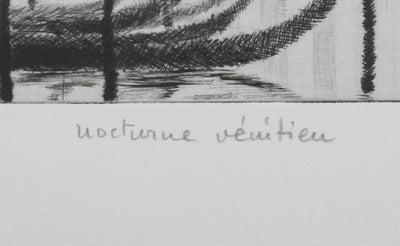 nocturne vénitien